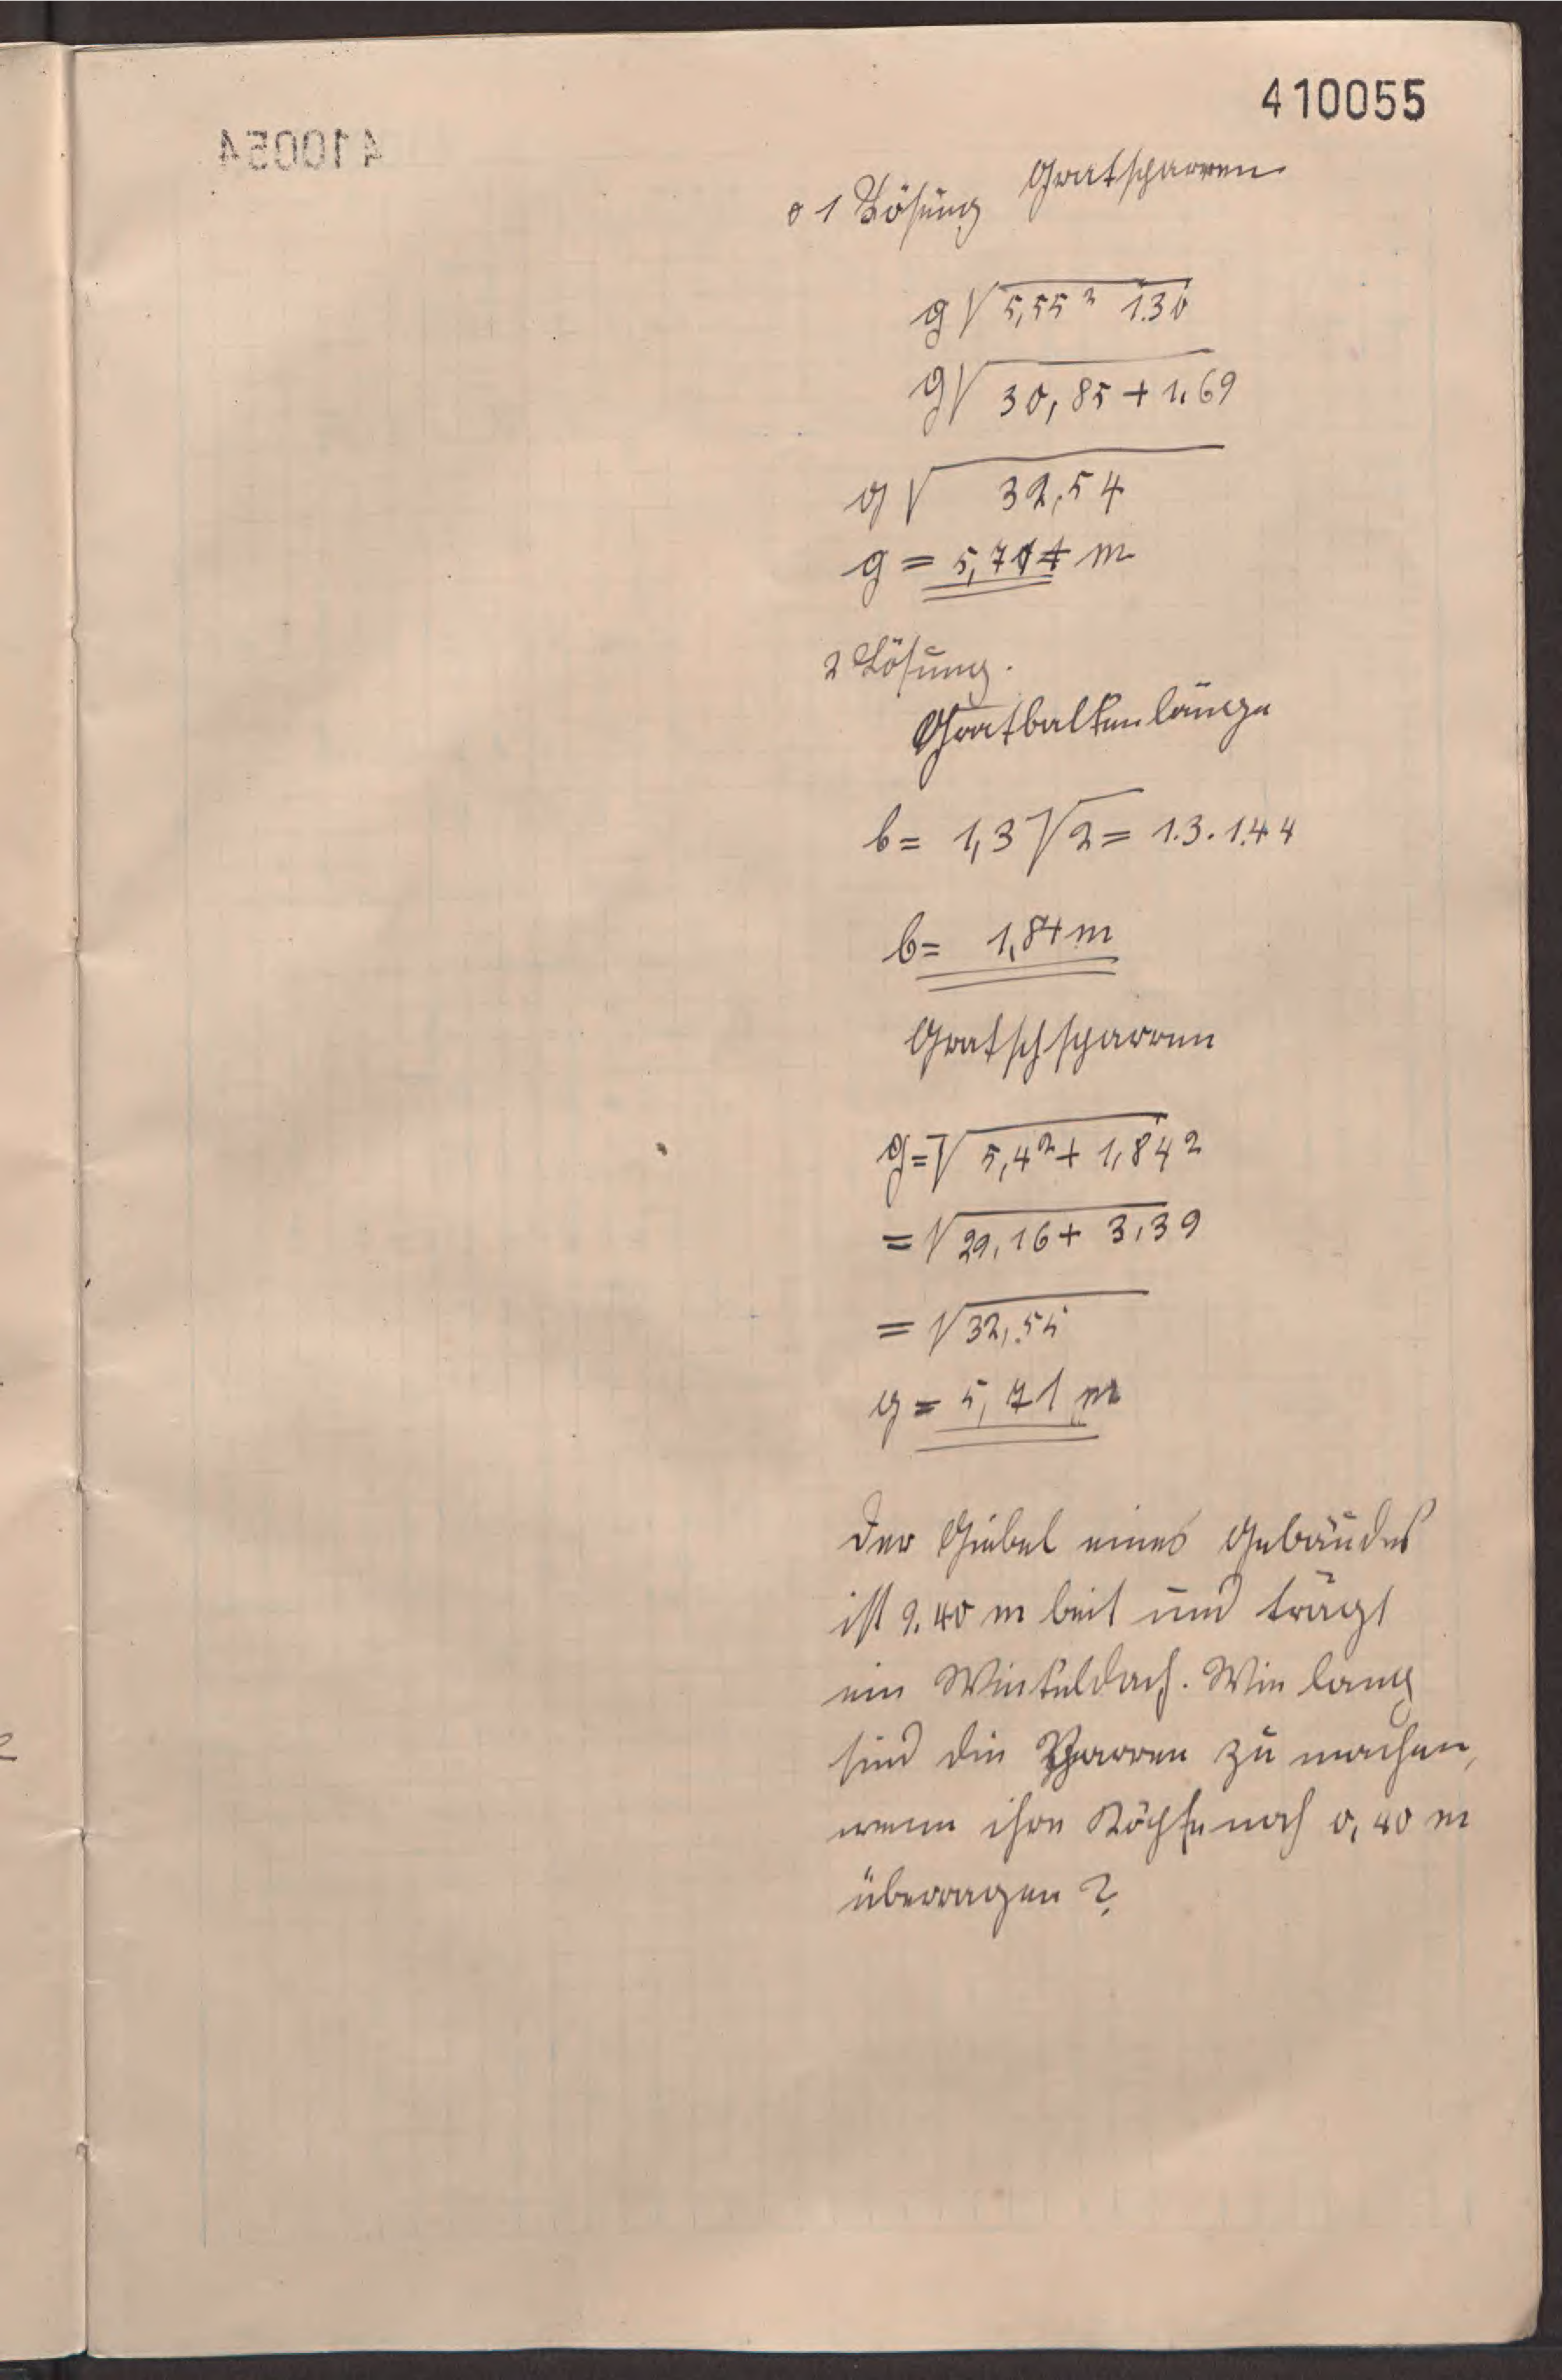 410055
410054
1 Lösung Gratsparren
g √5,55² 1.30
g √30,85 + 1,69
g √32,54
g = 5,704 m
2 Lösung.
Gratbalkenlänge
b = 1,3 √2 = 1.3 . 1.44
b = 1,84 m
Gratschsparren
g = √5,4² + 1,84²
= √29,16 + 3,39
= √32,55
g = 5,71 m
Der Giebel eines Gebäudes
ist 9.40 m beit und trägt
ein Winkeldach. Wie lang
sind die Sparren zu machen,
wenn ihre Köpfe noch 0,40 m
überragen?